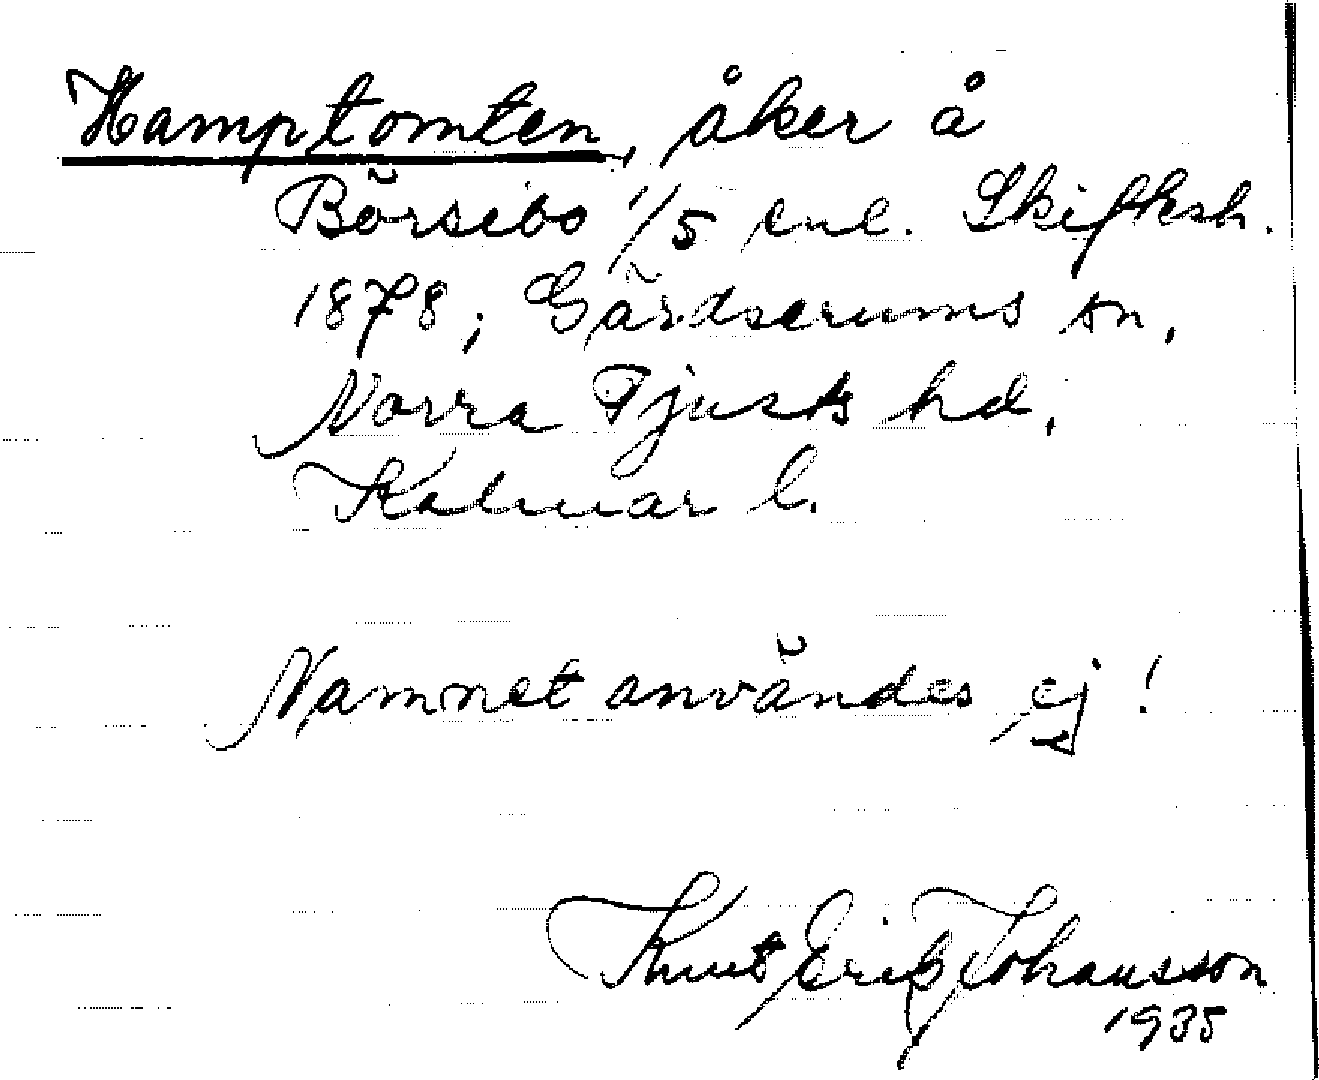 Hamptomten, åker å
Börsebo 1/5 enl. Skiftesh.
1878; Gärdserums sn,
Norra Tjusts hd,
Kalmar l.
Namnet användes ej!
Knut Erik Johansson
1935